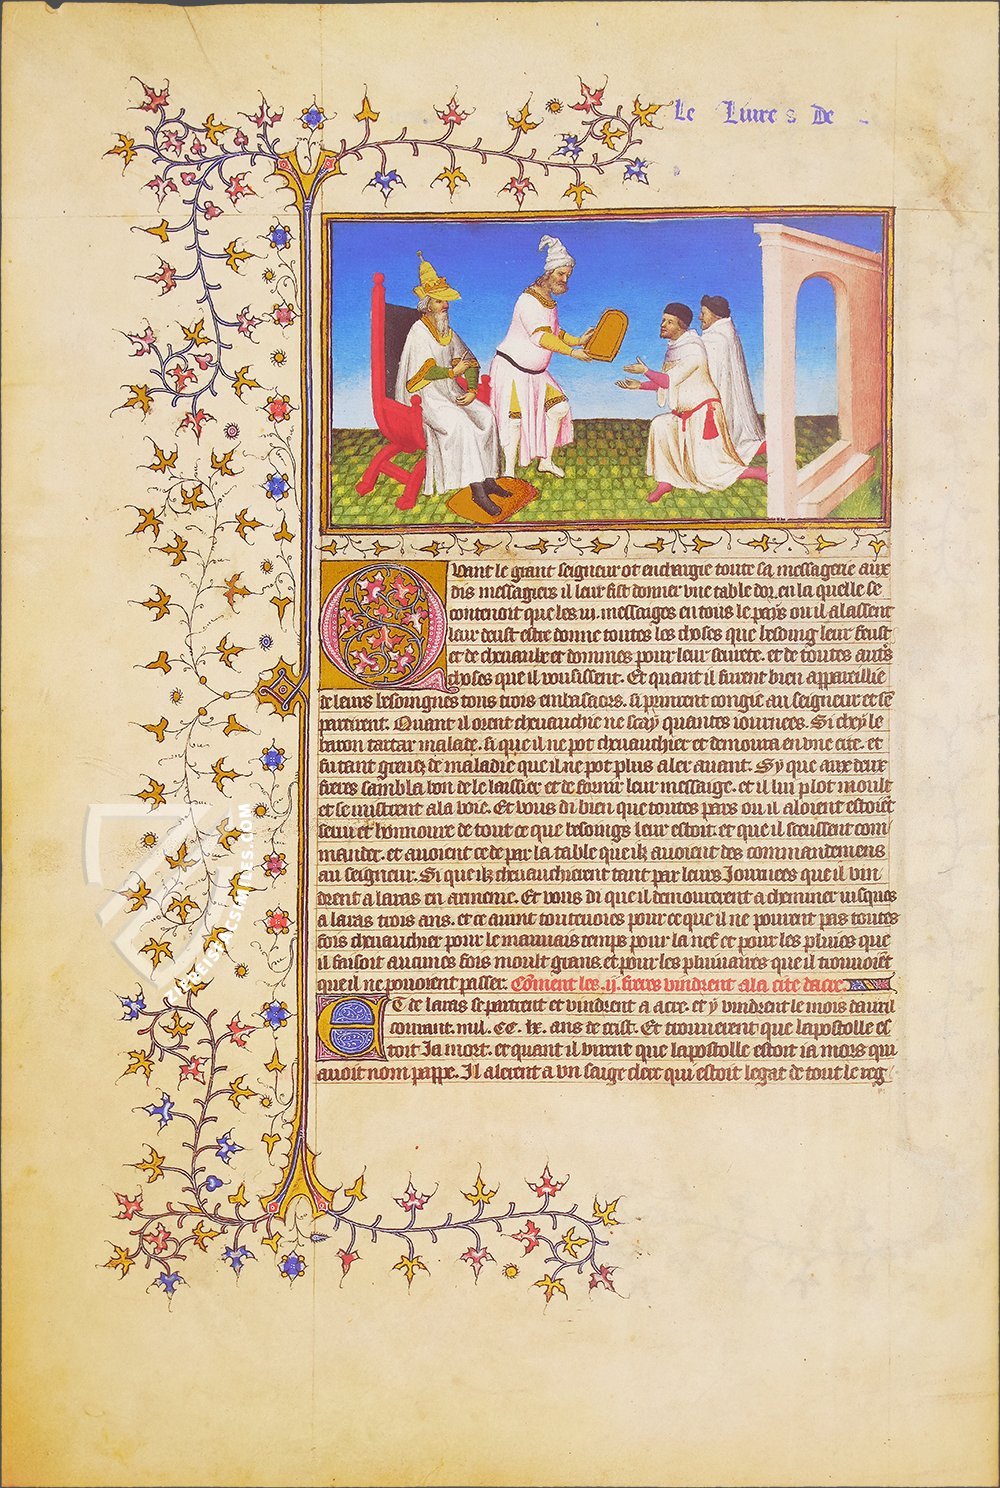 Le Liure s De
Quant le grant seigneur ot enchargie toute sa messagerie aux
dis messagiers il leur fist donner vne table dor. en la quelle se
contenoit que les .iii. messages en tous le pays ou il alassent
leur deust estre donne toutes les choses que besoing leur feust
et de cheuaulx et dommes pour leur seurete. et de toutes autres
choses que il vousissent. Et quant il furent bien appareillie
de leurs besoingnes tous trois embasaors. si prinrent congie au seigneur et sen
partirent. Quant il orent cheuauchie ne scay quantes iournees. Si chey le
baron tartar malade. si que il ne pot cheuauchier et demoura en vne cite. et
fu tant greuez de maladie que il ne pot plus aler auant. Sy que aux deux
freres sambla bon de le laissier et de fornir leur messaige. et il lui plot moult
et se mistrent a la voie. Et vous di bien que toutes pars ou il aloient estoient
serui et honnoure de tout ce que besoings leur estoit. et que il sceussent com
mander. et auoient ce de par la table que ilz auoient des commandemens
au seigneur. Si que ilz cheuauchierent tant par leurs Journees que il vin
drent a laras en armenie. Et vous di que il demourerent a cheminer iusques
a laras trois ans. et ce auint toutesuoies pour ce que il ne porent pas toutes
fois cheuauchier pour le mauuais temps pour la nef et pour les pluies que
il faisoit aucunes fois moult grans et pour les pluuiaires que il trouuoient
que il ne pouoient passer. Coment les .ij. freres vindrent a la cite dacre.
ET de laras se partirent et vindrent a acre. et y vindrent le mois dauril
courant. mil. CC. lx. ans de crist. Et trouuerent que lapostolle es
toit Ja mort. et quant il virent que lapostolle estoit ia mors qui
auoit nom pappe. Il alerent a vn saige clerc qui estoit legat de tout le reg
ZIEREISFACSIMILES.COM